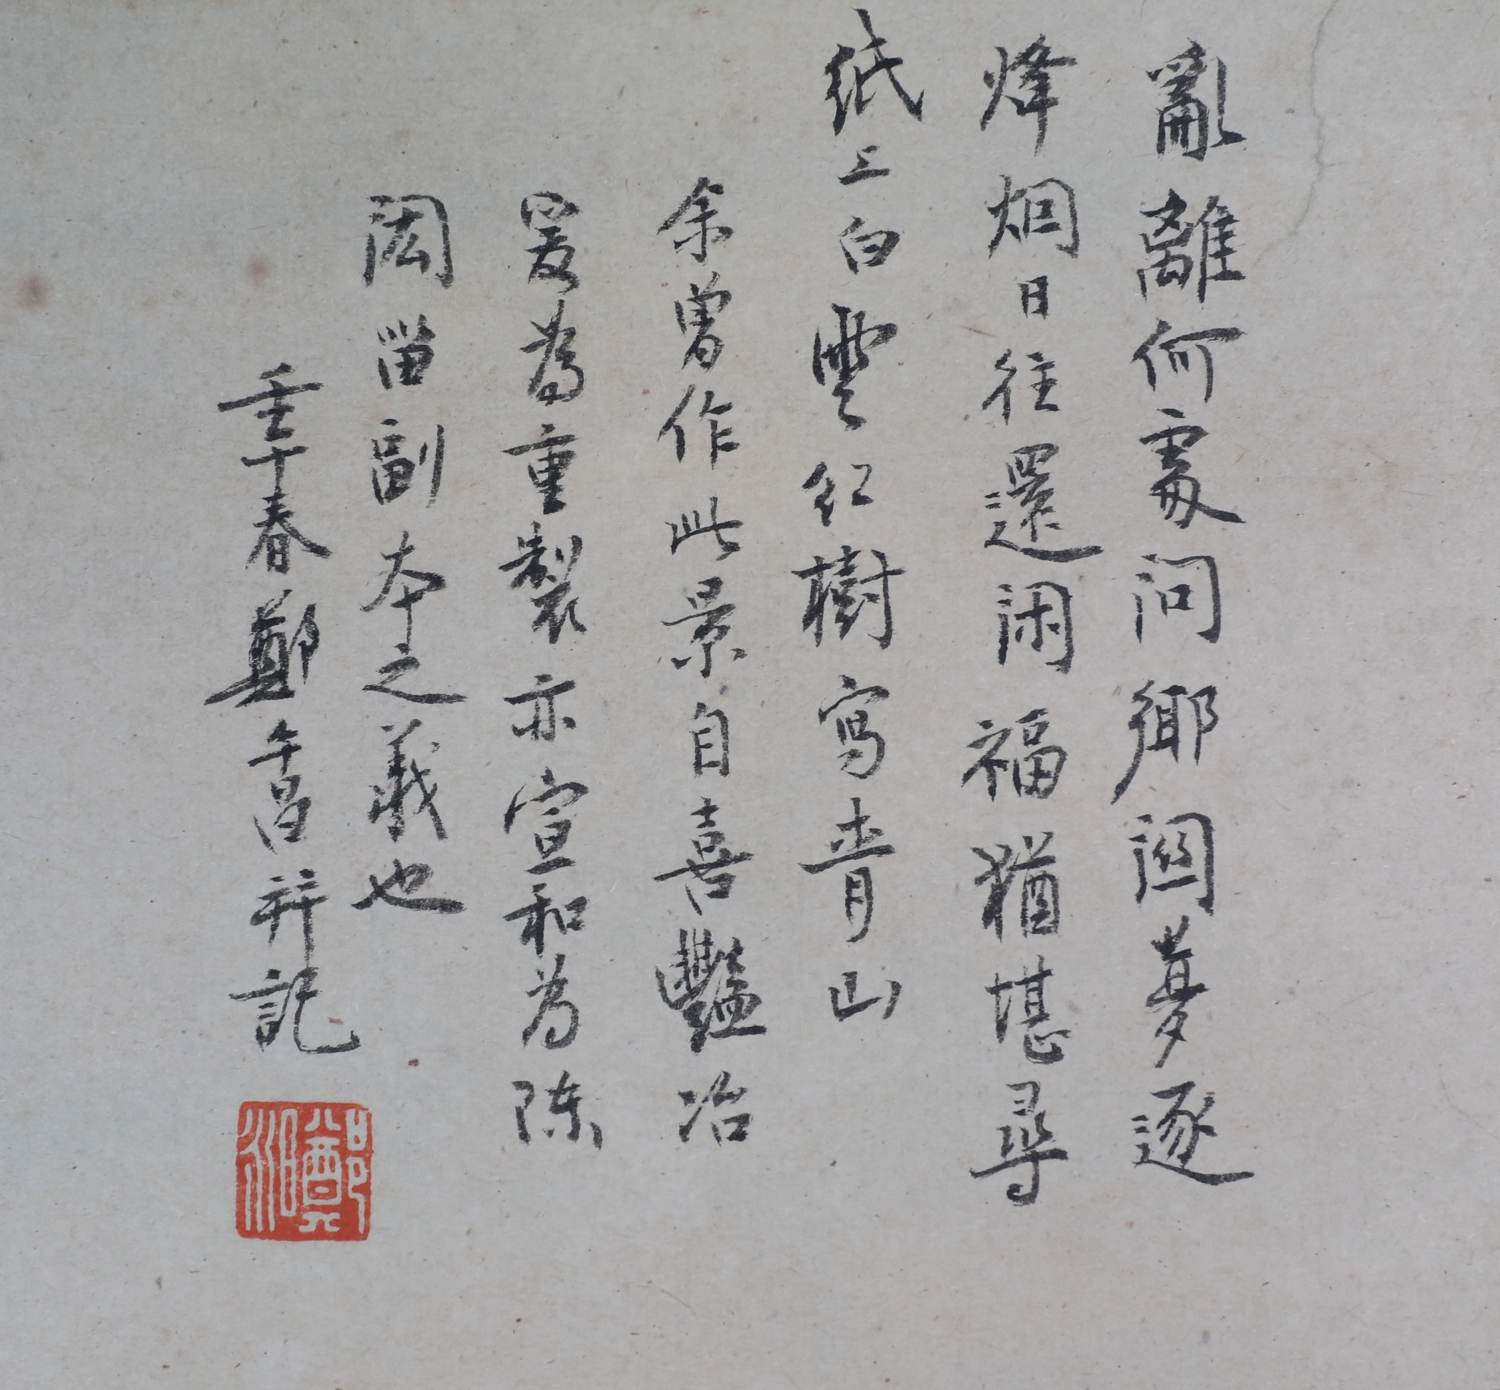 亂離何處問鄉關夢逐
烽烟日往還閑福猶堪尋
紙上白雲紅樹寫青山
余曾作此景自喜豔冶
爰為重製亦宣和為陳
閎留副本之義也
壬午春鄭午昌并記